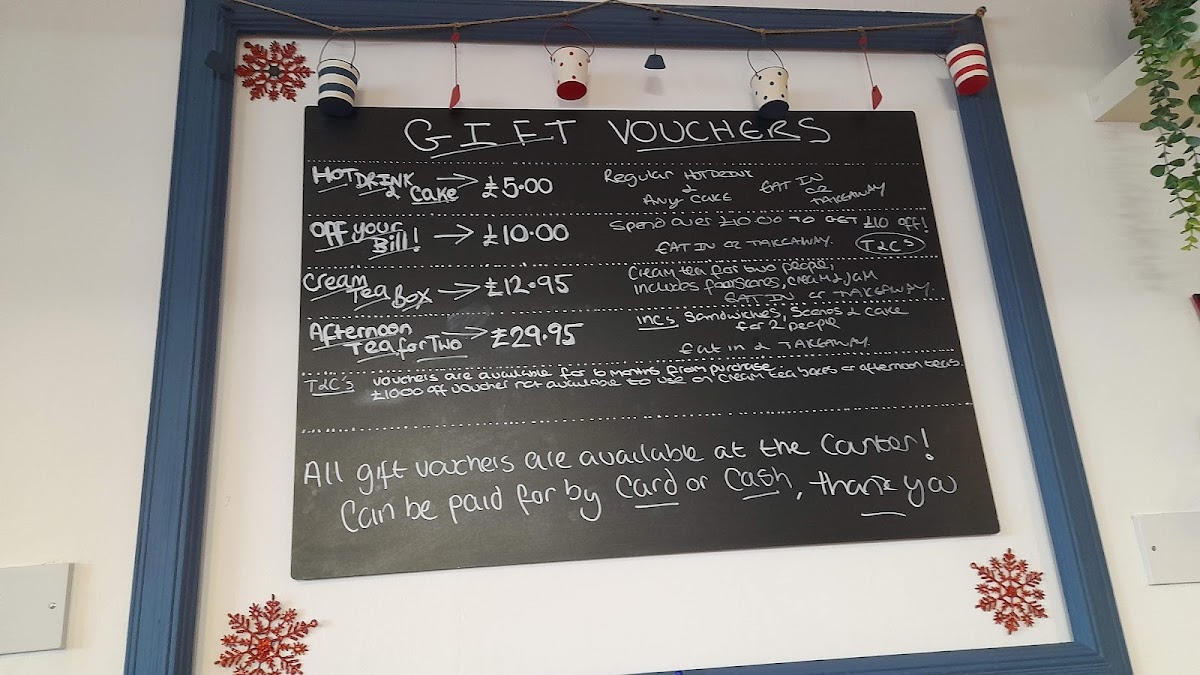 GIFT VOUCHERS
HOT DRINK & Cake → £5.00
Regular HOT DRINK & ANY CAKE
EAT IN OR TAKEAWAY
OFF your Bill! → £10.00
Spend over £10.00 TO GET £10 off!
EAT IN or TAKEAWAY. T&C's
Cream Tea Box → £12.95
Cream tea for two people,
includes four scones, cream & jam
EAT IN or TAKEAWAY.
Afternoon Tea for Two → £29.95
INCs Sandwiches, Scones & cake
for 2 people
Eat in & TAKEAWAY.
T&C's vouchers are available for 6 months from purchase.
£10.00 off voucher not available to use on cream tea boxes or afternoon teas.
All gift vouchers are available at the Counter!
Can be paid for by Card or Cash, thank you